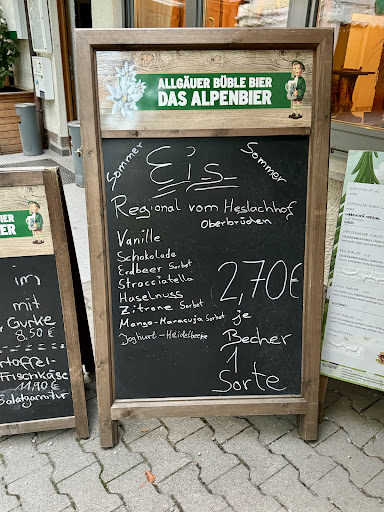 ALLGÄUER BÜBLE BIER
DAS ALPENBIER
Sommer Eis Sommer
Regional vom Heslachhof
Oberbrüden
Vanille
Schokolade
Erdbeer Sorbet
Stracciatella
Haselnuss
Zitrone Sorbet
Mango-Maracuja Sorbet
Joghurt-Heidelbeere
2,70€
je
Becher
1
Sorte
BIER
ER
im
mit
Gurke
8,50€
rtoffel-
Frischkäse
11,90€
Salatgarnitur